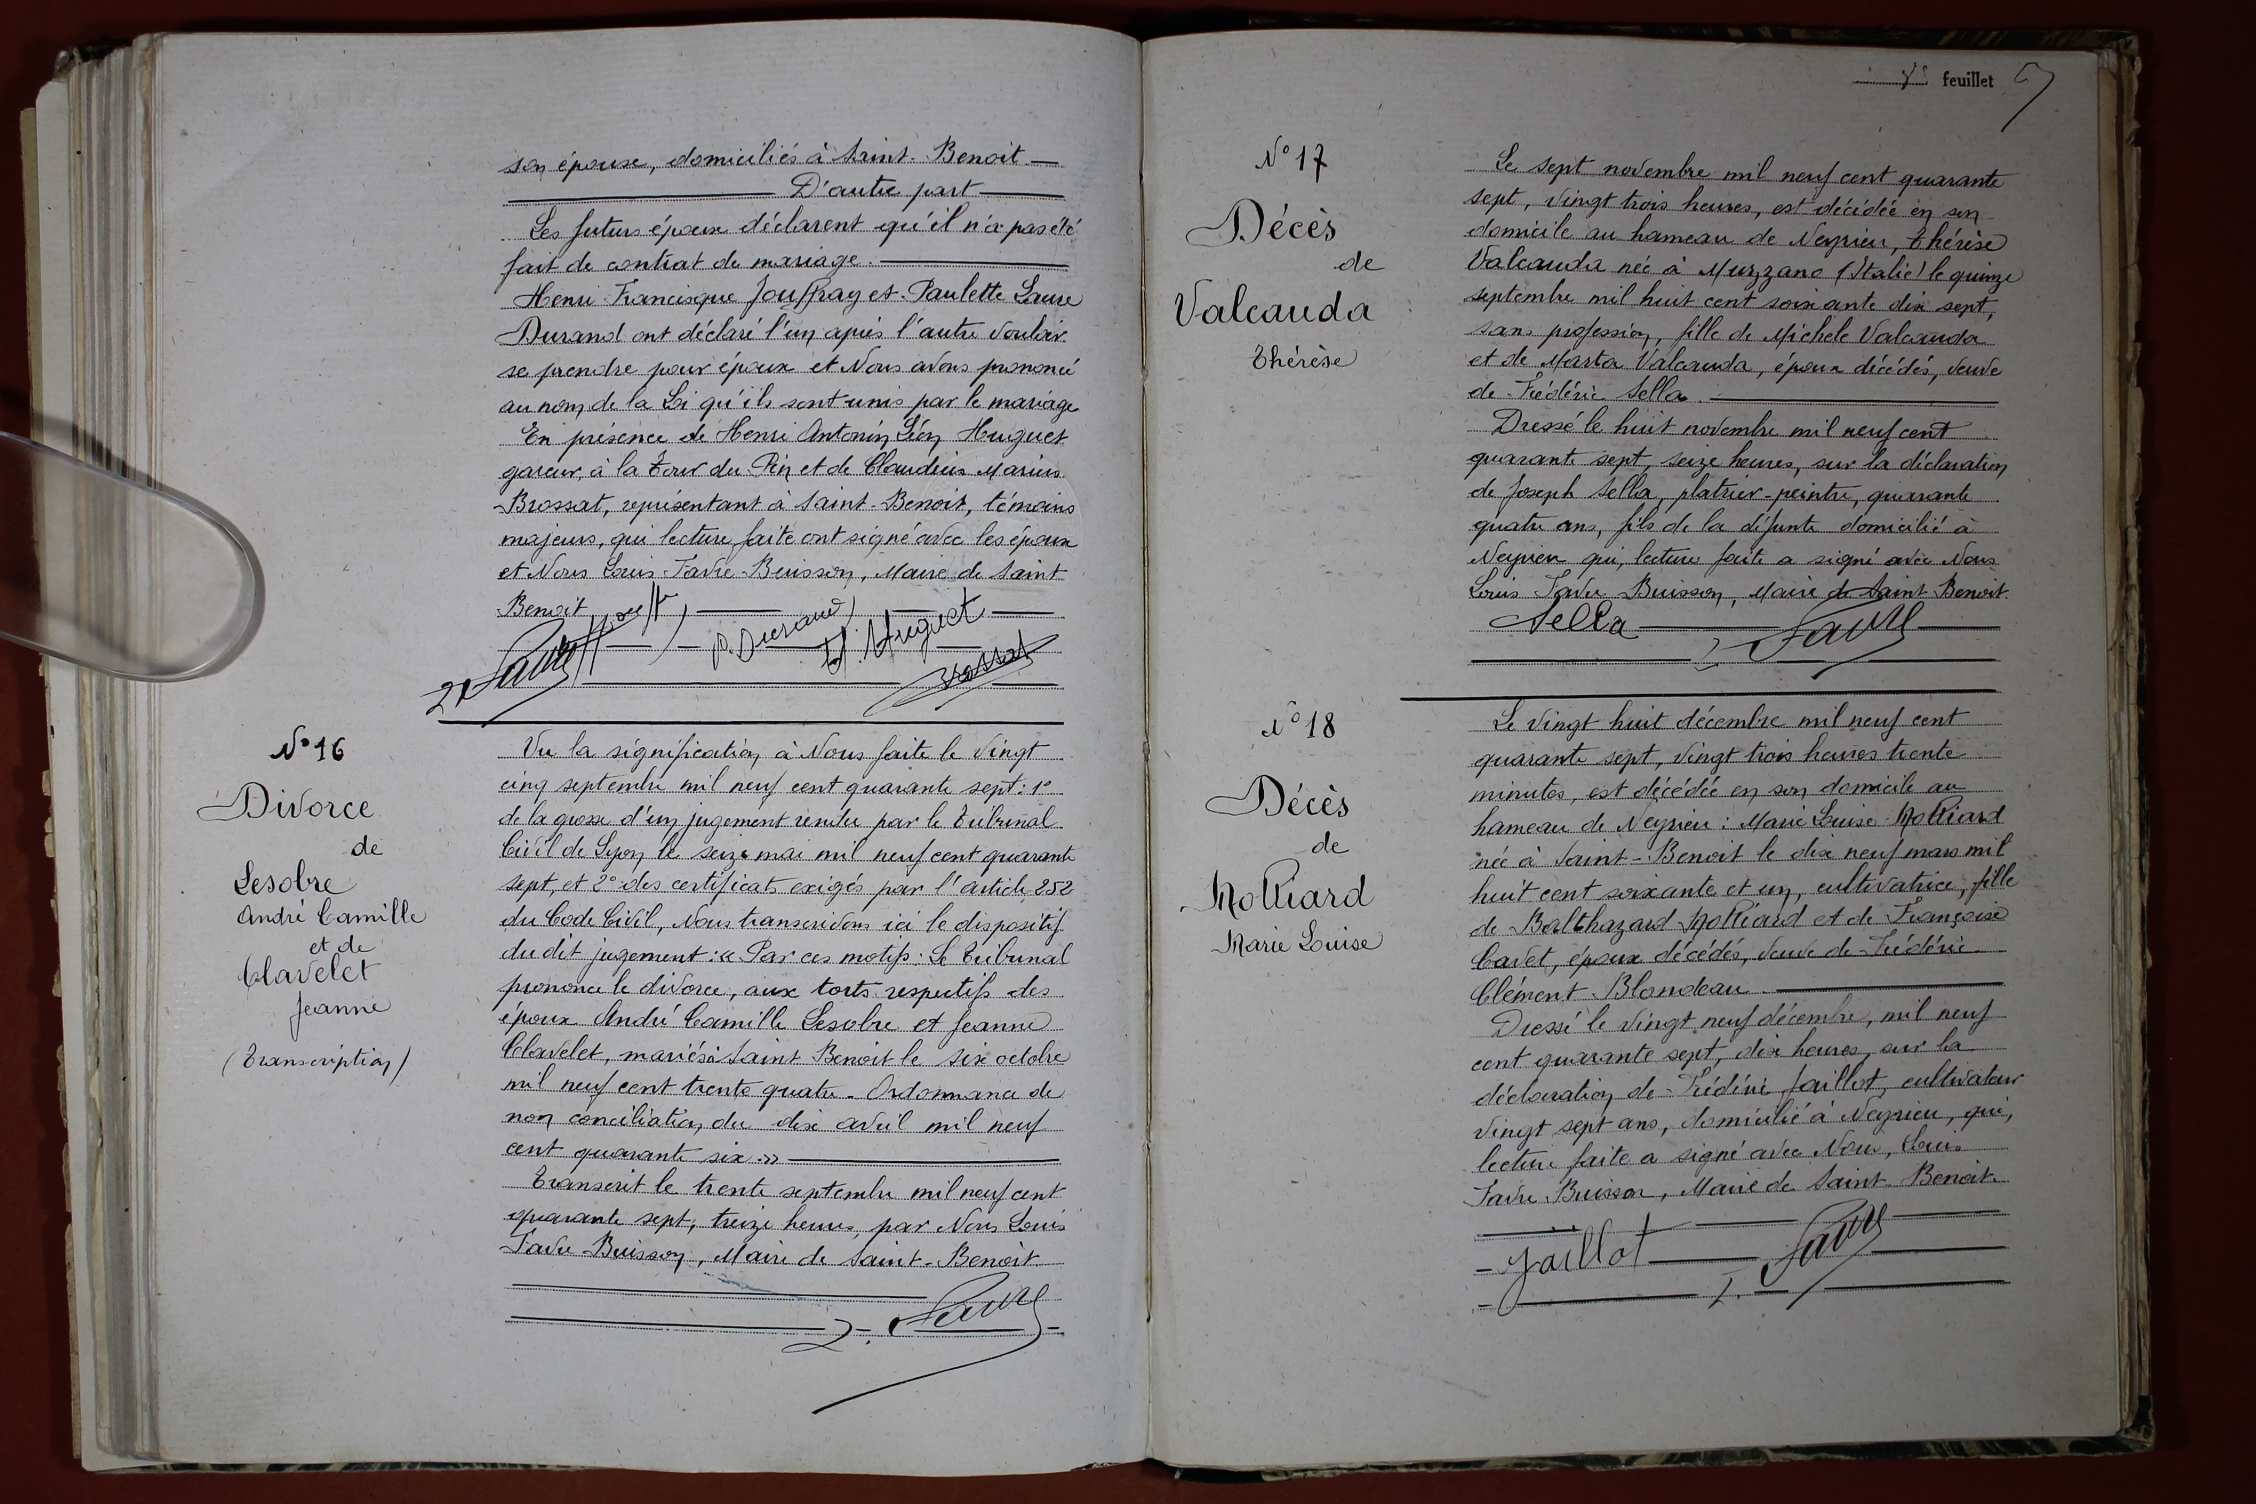 son épouse, domiciliés à Saint-Benoit
D'autre part
Les futurs époux déclarent qu'il n'a pas été
fait de contrat de mariage.
Henri Francisque Jouffray et Paulette Laure
Durand ont déclaré l'un après l'autre vouloir
se prendre pour époux et Nous avons prononcé
au nom de la Loi qu'ils sont unis par le mariage
En présence de Henri Antonin Léon Huguet
gareur, à la Tour du Pin et de Claudius Marius
Brossat, représentant à Saint-Benoit, témoins
majeurs, qui lecture faite ont signé avec les époux
et Nous Louis Favre-Buisson, Maire de Saint
Benoit
P. Durand
H. Huguet
L. Favre
Brossat
N° 16
Divorce
de
Lesobre
André Camille
et de
Clavelet
Jeanne
(Transcription)
Vu la signification à Nous faite le vingt
cinq septembre mil neuf cent quarante sept : 1°
de la grosse d'un jugement rendu par le Tribunal
Civil de Lyon le seize mai mil neuf cent quarante
sept, et 2° des certificats exigés par l'article 252
du Code Civil, Nous transcrivons ici le dispositif
du dit jugement : « Par ces motifs : Le Tribunal
prononce le divorce, aux torts respectifs des
époux André Camille Lesobre et Jeanne
Clavelet, mariés à Saint Benoit le six octobre
mil neuf cent trente quatre - Ordonnance de
non conciliation du dix avril mil neuf
cent quarante six. »
Transcrit le trente septembre mil neuf cent
quarante sept, treize heures, par Nous Louis
Favre-Buisson, Maire de Saint-Benoit
L. Favre
feuillet
N° 17
Décès
de
Valcauda
Thérèse
Le sept novembre mil neuf cent quarante
sept, vingt trois heures, est décédée en son
domicile au hameau de Neyrieu, Thérèse
Valcauda née à Muzzano (Italie) le quinze
septembre mil huit cent soixante dix sept,
sans profession, fille de Michele Valcauda
et de Marta Valcauda, époux décédés, veuve
de Frédéric Sella.
Dressé le huit novembre mil neuf cent
quarante sept, seize heures, sur la déclaration
de Joseph Sella, platrier-peintre, quarante
quatre ans, fils de la défunte domicilié à
Neyrieu qui, lecture faite a signé avec Nous
Louis Favre Buisson, Maire de Saint Benoit.
Sella
L. Favre
N° 18
Décès
de
Molliard
Marie Louise
Le vingt huit décembre mil neuf cent
quarante sept, vingt trois heures trente
minutes, est décédée en son domicile au
hameau de Neyrieu : Marie Louise Molliard
née à Saint-Benoit le dix neuf mars mil
huit cent soixante et un, cultivatrice, fille
de Balthazard Molliard et de Françoise
Cavet, époux décédés, veuve de Frédéric
Clément Blandeau.
Dressé le vingt neuf décembre, mil neuf
cent quarante sept, dix heures, sur la
déclaration de Frédéric Jaillot, cultivateur
vingt sept ans, domicilié à Neyrieu, qui,
lecture faite a signé avec Nous, Louis
Favre Buisson, Maire de Saint-Benoit.
Jaillot
L. Favre